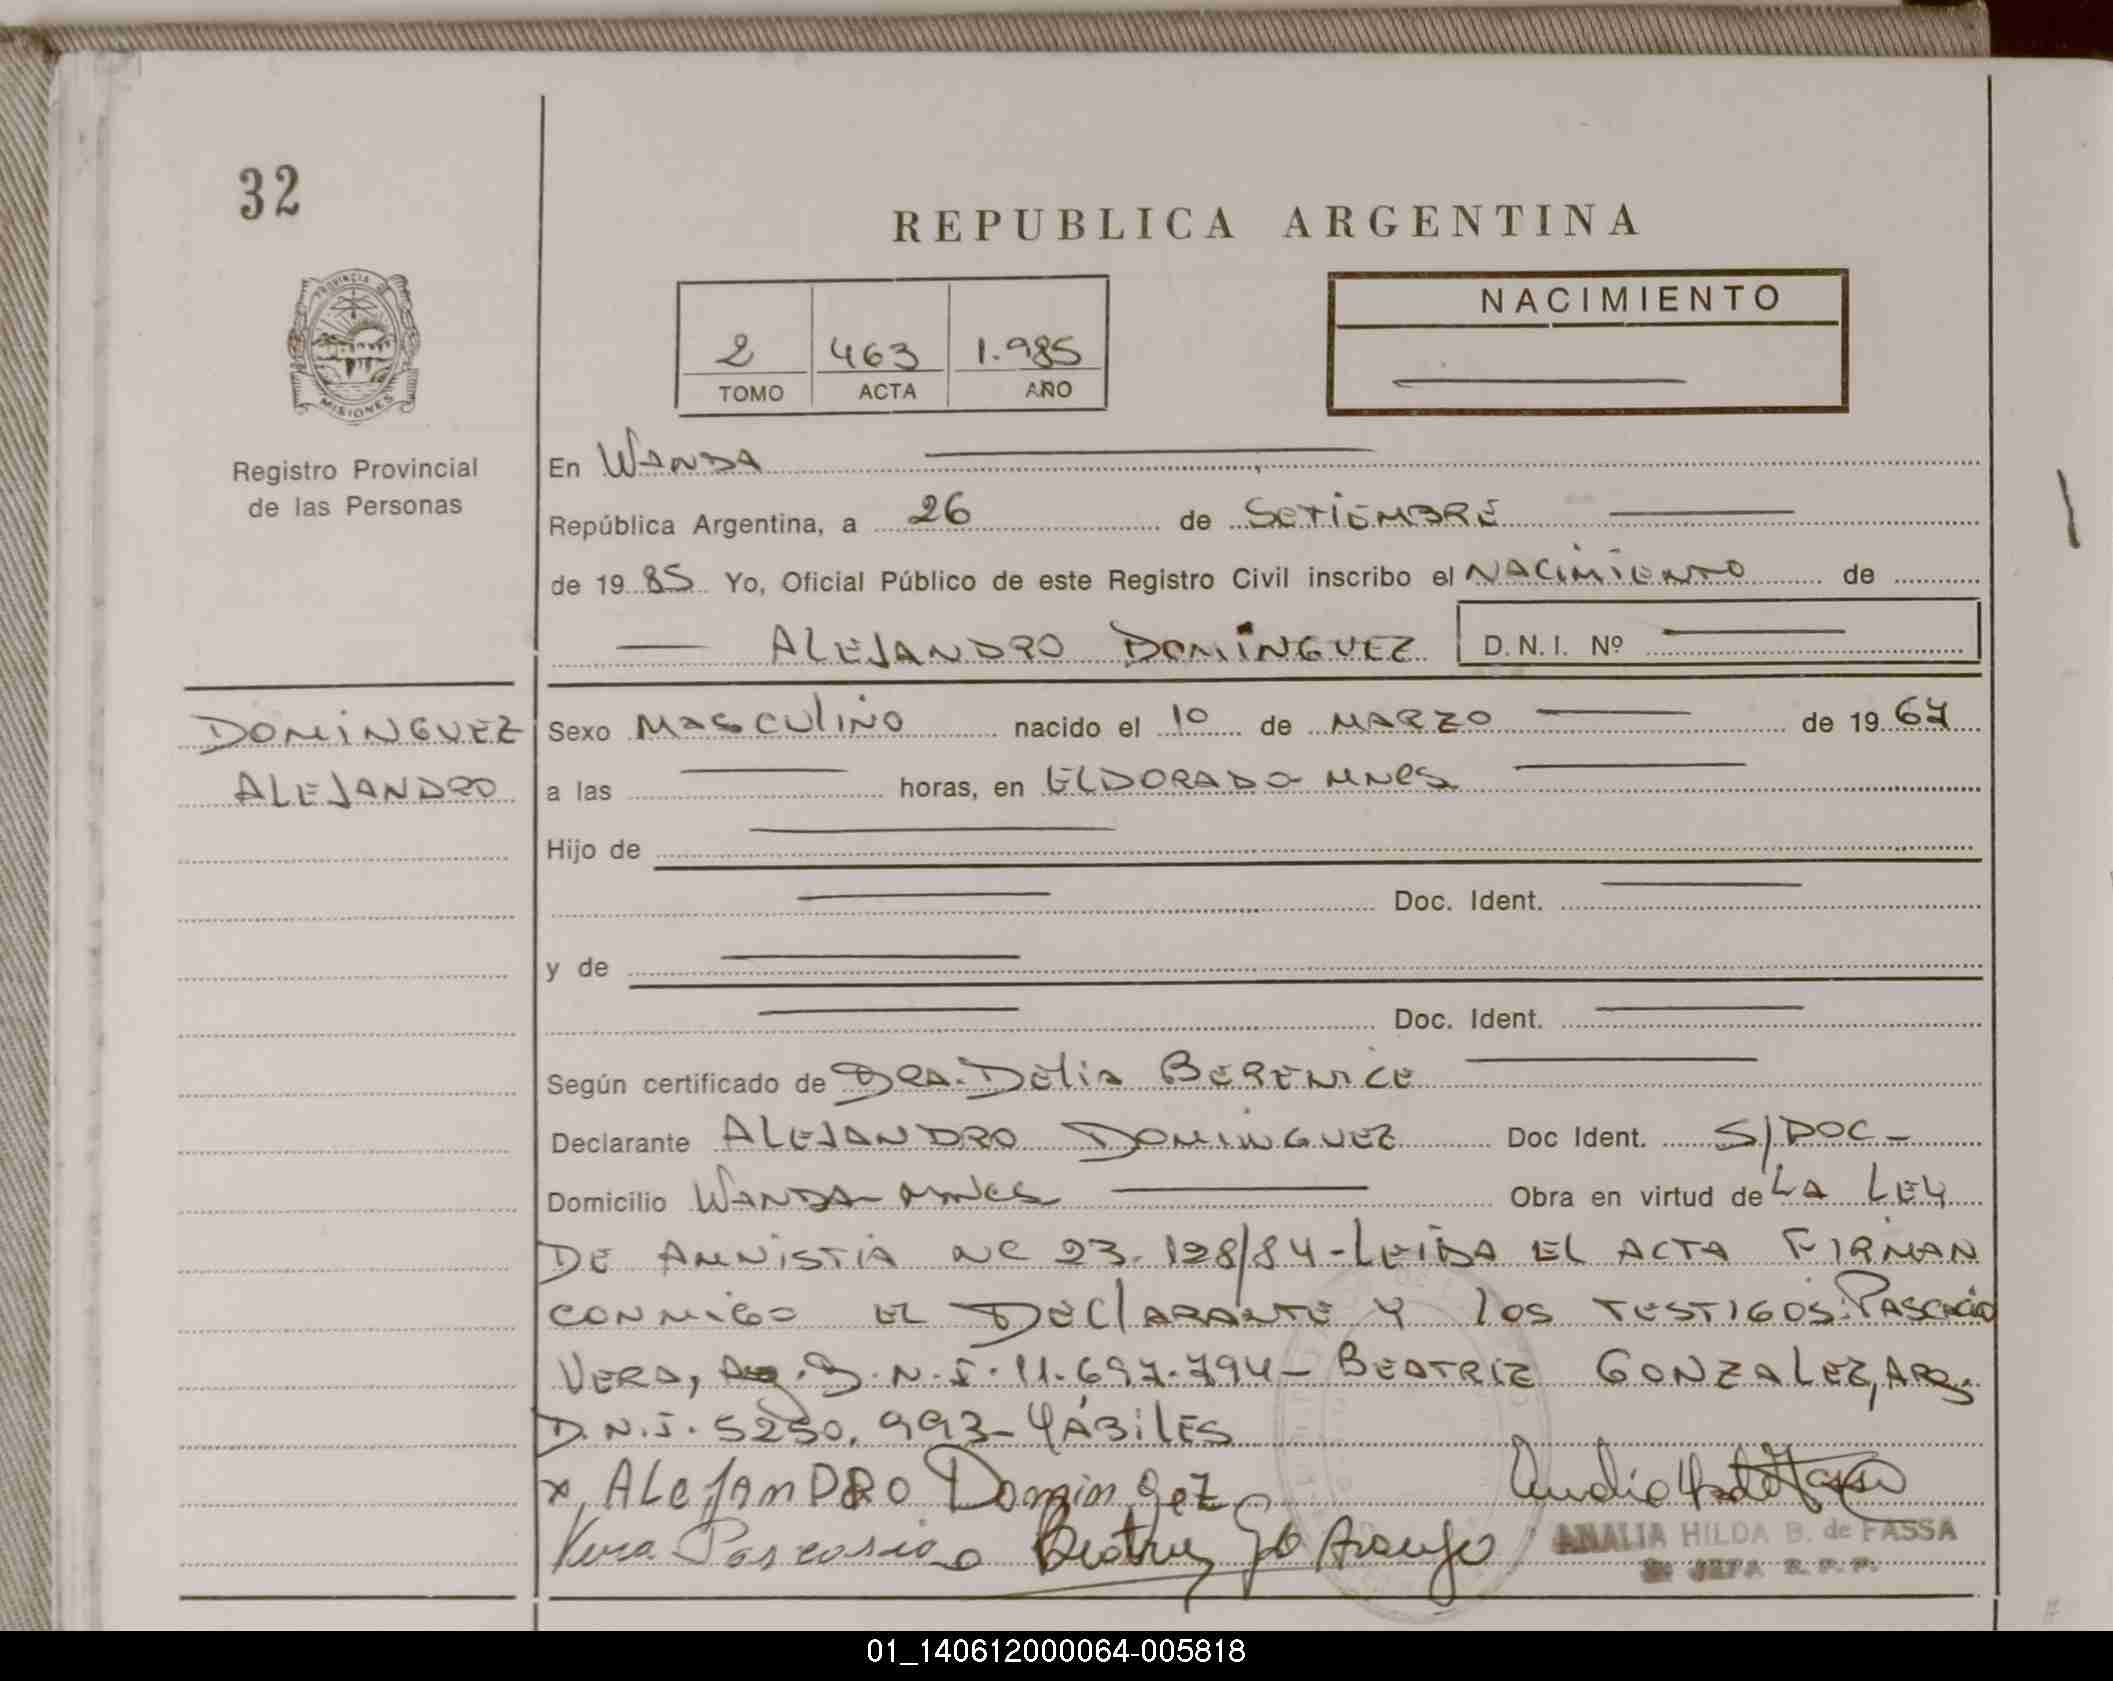 32
REPUBLICA ARGENTINA
PROVINCIA DE
MISIONES
Registro Provincial
de las Personas
2 463 1.985
TOMO ACTA AÑO
NACIMIENTO
En WANDA
República Argentina, a 26 de SETIEMBRE
de 1985 Yo, Oficial Público de este Registro Civil inscribo el NACIMIENTO de
ALEJANDRO DOMINGUEZ D.N.I. Nº
DOMINGUEZ
ALEJANDRO
Sexo MASCULINO nacido el 10 de MARZO de 1967
a las horas, en ELDORADO MNES
Hijo de
Doc. Ident.
y de
Doc. Ident.
Según certificado de DRA. DELIA BERENICE
Declarante ALEJANDRO DOMINGUEZ Doc Ident. S/DOC-
Domicilio WANDA-MNES Obra en virtud de LA LEY
DE AMNISTIA Nº 23.128/84-LEIDA EL ACTA FIRMAN
CONMIGO EL DECLARANTE Y LOS TESTIGOS: PASCACIO
VERA, Arg. D.N.I. 11.697.794- BEATRIZ GONZALEZ, ARG.
D.N.I. 5250.993- HÁBILES
x ALEJANDRO Domingez
Vera Pascasio Beatriz Go Araujo
ANALIA HILDA B. de FASSA
JEFA R.P.P.
01_140612000064-005818